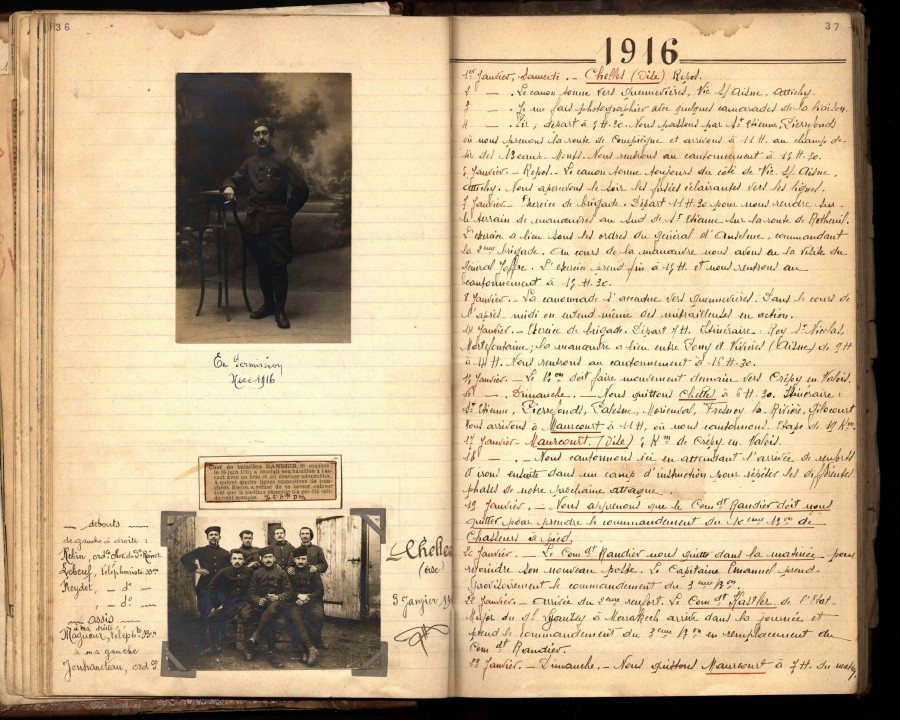 36
En Permission
Nice 1916
Chef de bataillon RANDIER,
debouts
de gauche à droite :
Lebeuf, téléphoniste
Reydet, — d° —
, — d° —
assis
à ma droite :
Magnour,
à ma gauche
Jouhaneteau, ord
Chelles
(Oise)
3 Janvier
37
1916
1er Janvier, Samedi. — Chelles (Oise) Repos.
2 — . Le canon tonne vers Quennevières, Vic s/ Aisne, Attichy.
3 — . Je me fais photographier avec quelques camarades de la liaison.
4 — . départ à 9 H. 30. Nous passons par St Etienne, Pierrefonds
où nous prenons la route de Compiègne et arrivons à 11 H. au champ de
tir des Beaux Monts. Nous rentrons au cantonnement à 15 H. 30.
5 Janvier. — Repos. — Le canon tonne toujours du côté de Vic s/ Aisne,
Attichy. Nous apercevons le soir les fusées éclairantes vers les lignes.
7 Janvier. — Exercice de brigade. Départ 11 H. 30 pour nous rendre sur
le terrain de manœuvres au sud de St Etienne sur la route de Retheuil.
L'exercice a lieu sous les ordres du général d'Anselme, commandant
la 2ème brigade. Au cours de la manœuvre nous avons eu la visite du
général Joffre. L'exercice prend fin à 15 H. et nous rentrons au
cantonnement à 17 H. 30.
8 Janvier. — La canonnade s'accentue vers Quennevières. Dans le cours de
l'après-midi on entend même des mitrailleuses en action.
14 Janvier. — Exercice de brigade. Départ 7 H. Itinéraire : Roy St Nicolas,
Mortefontaine ; la manœuvre a lieu entre et Vivières (Aisne) de 9 H
à 14 H. Nous rentrons au cantonnement à 15 H. 30.
15 Janvier. — Le Bon doit faire mouvement demain vers Crépy en Valois.
16 — , Dimanche. — Nous quittons Chelles à 6 H. 30. Itinéraire :
St Etienne, Pierrefonds, Palesne, Morienval, Fresnoy la Rivière, Gilocourt
nous arrivons à Maucourt à 11 H, où nous cantonnons. Etape de 19 Km.
17 Janvier — Maucourt (Oise) 5 Km de Crépy en Valois.
18 — . — Nous cantonnons ici en attendant l'arrivée de renforts
et irons ensuite dans un camp d'instruction pour répéter les différentes
phases de notre prochaine attaque.
19 Janvier. — Nous apprenons que le Comdt Randier doit nous
quitter pour prendre le commandement du Bon de
Chasseurs à pied.
20 Janvier. — Le Comdt Randier nous quitte dans la matinée pour
rejoindre son nouveau poste. Le Capitaine Emanuel prend
provisoirement le commandement du 3ème Bon.
22 Janvier. — Arrivée du 2ème renfort. Le Comdt de l'Etat-
Major du Gl Lyautey à Marakech arrive dans la journée et
prend le commandement du 3ème Bon en remplacement du
Comdt Randier.
23 Janvier. — Dimanche. — Nous quittons Maucourt à 7 H. du matin,